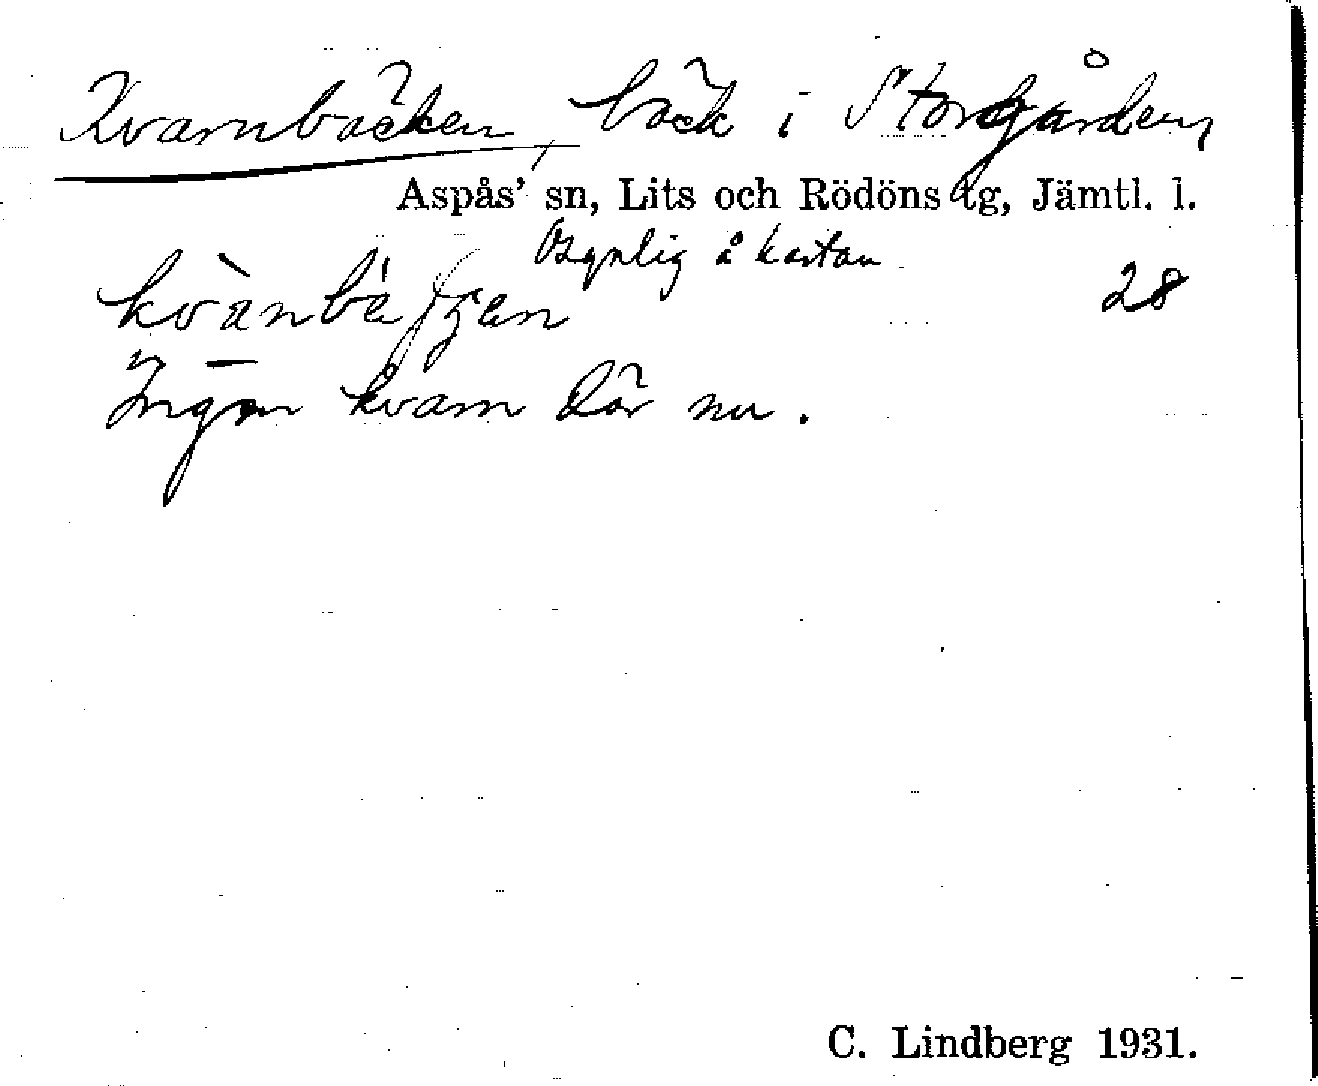 Kvarnbäcken, bäck i Storgården,
Aspås' sn, Lits och Rödöns tg, Jämtl. l.
Osynlig å kartan
28
Ingen kvarn där nu.
C. Lindberg 1931.